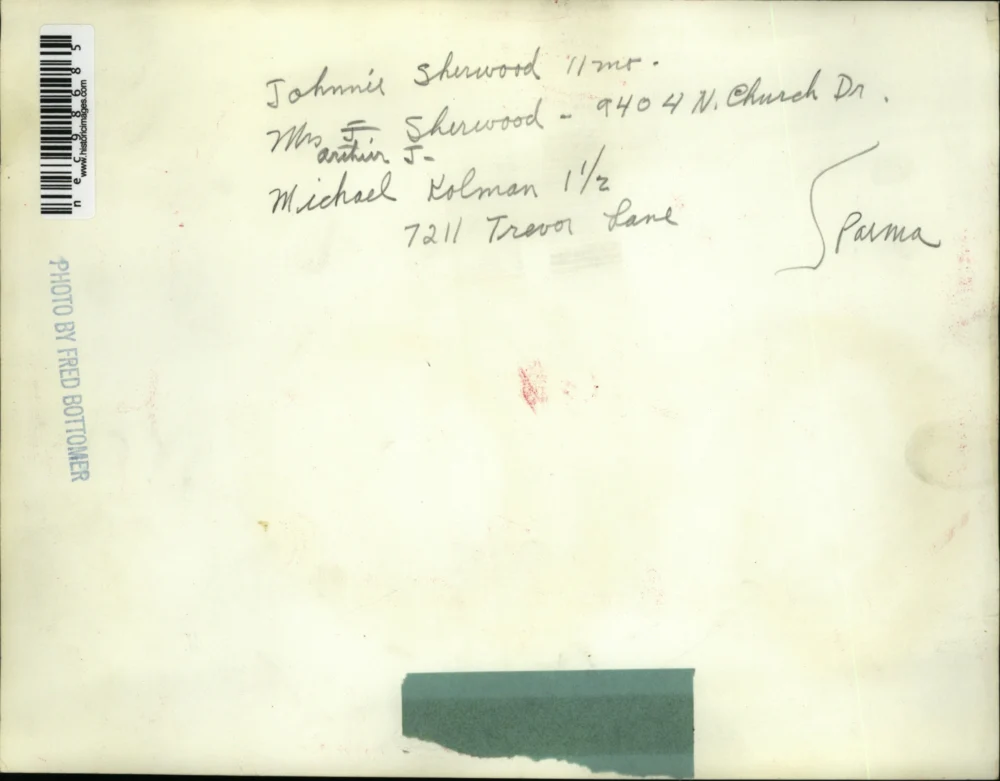 Johnnie Sherwood 11 mo.
Mrs J. Sherwood - 9404 N. Church Dr.
Arthur J-
Michael Kolman 1 1/2
7211 Trevor Lane
Parma
PHOTO BY FRED BOTTOMER
nec98685
www.historicimages.com